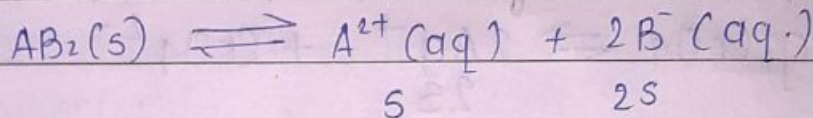 AB₂(s) ⇌ A²⁺ (aq) + 2B⁻ (aq.)
S 2S